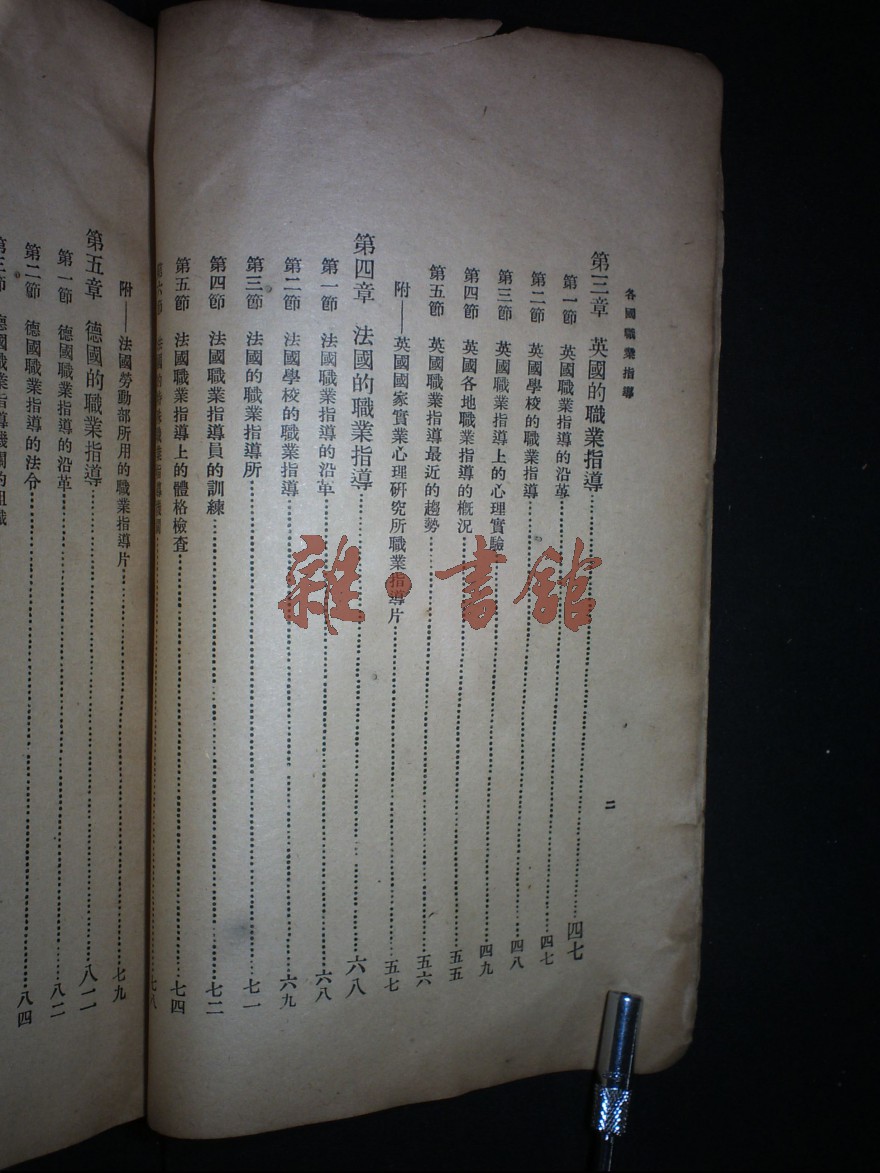 各國職業指導
二
第三章 英國的職業指導……四七
第一節 英國職業指導的沿革……四七
第二節 英國學校的職業指導……四八
第三節 英國職業指導上的心理實驗……四九
第四節 英國各地職業指導的概況……五五
第五節 英國職業指導最近的趨勢……五六
附——英國國家實業心理硏究所職業指導片……五七
第四章 法國的職業指導……六八
第一節 法國職業指導的沿革……六八
第二節 法國學校的職業指導……六九
第三節 法國的職業指導所……七一
第四節 法國職業指導員的訓練……七二
第五節 法國職業指導上的體格檢查……七四
第六節 法國的特殊職業指導機關……七八
附——法國勞動部所用的職業指導片……七九
第五章 德國的職業指導……八二
第一節 德國職業指導的沿革……八二
第二節 德國職業指導的法令……八四
第三節 德國職業指導機關的組織
雜·書館